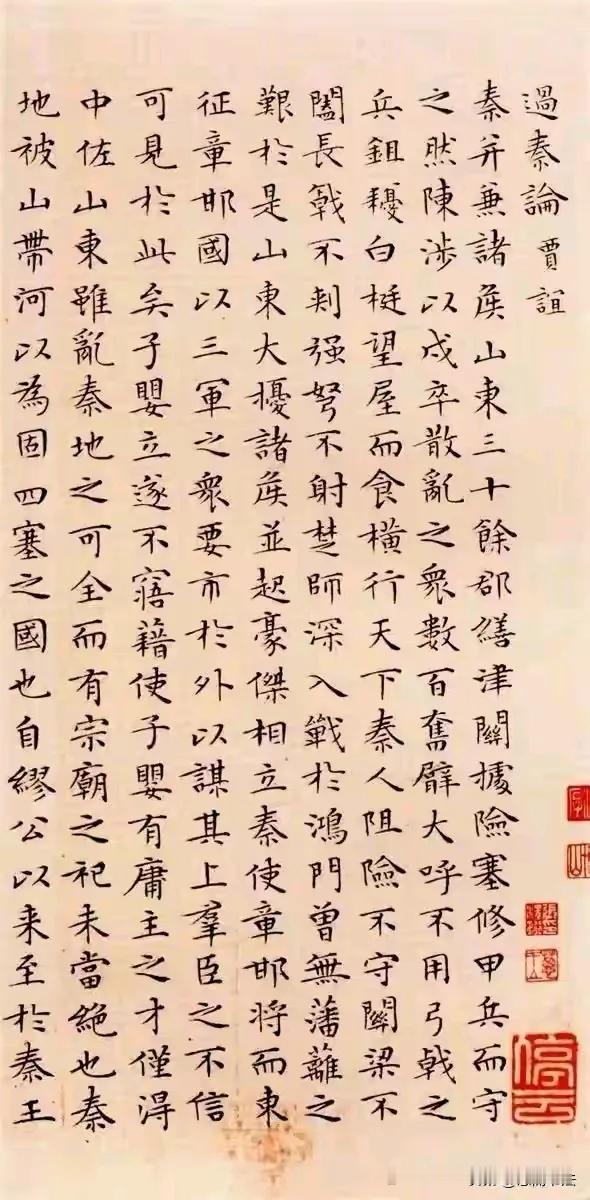 過秦論 賈誼
秦并兼諸矦山東三十餘郡繕津關據險塞修甲兵而守
之然陳涉以戍卒散亂之衆數百奮臂大呼不用弓戟之
兵鉏耰白梃望屋而食橫行天下秦人阻險不守關梁不
闔長戟不刺强弩不射楚師深入戰於鴻門曾無藩蘺之
艱於是山東大擾諸矦並起豪傑相立秦使章邯將而東
征章邯國以三軍之衆要市於外以謀其上羣臣之不信
可見於此矣子嬰立遂不寤藉使子嬰有庸主之才僅得
中佐山東雖亂秦地之可全而有宗廟之祀未當絕也秦
地被山帶河以為固四塞之國也自繆公以来至於秦王
停雲